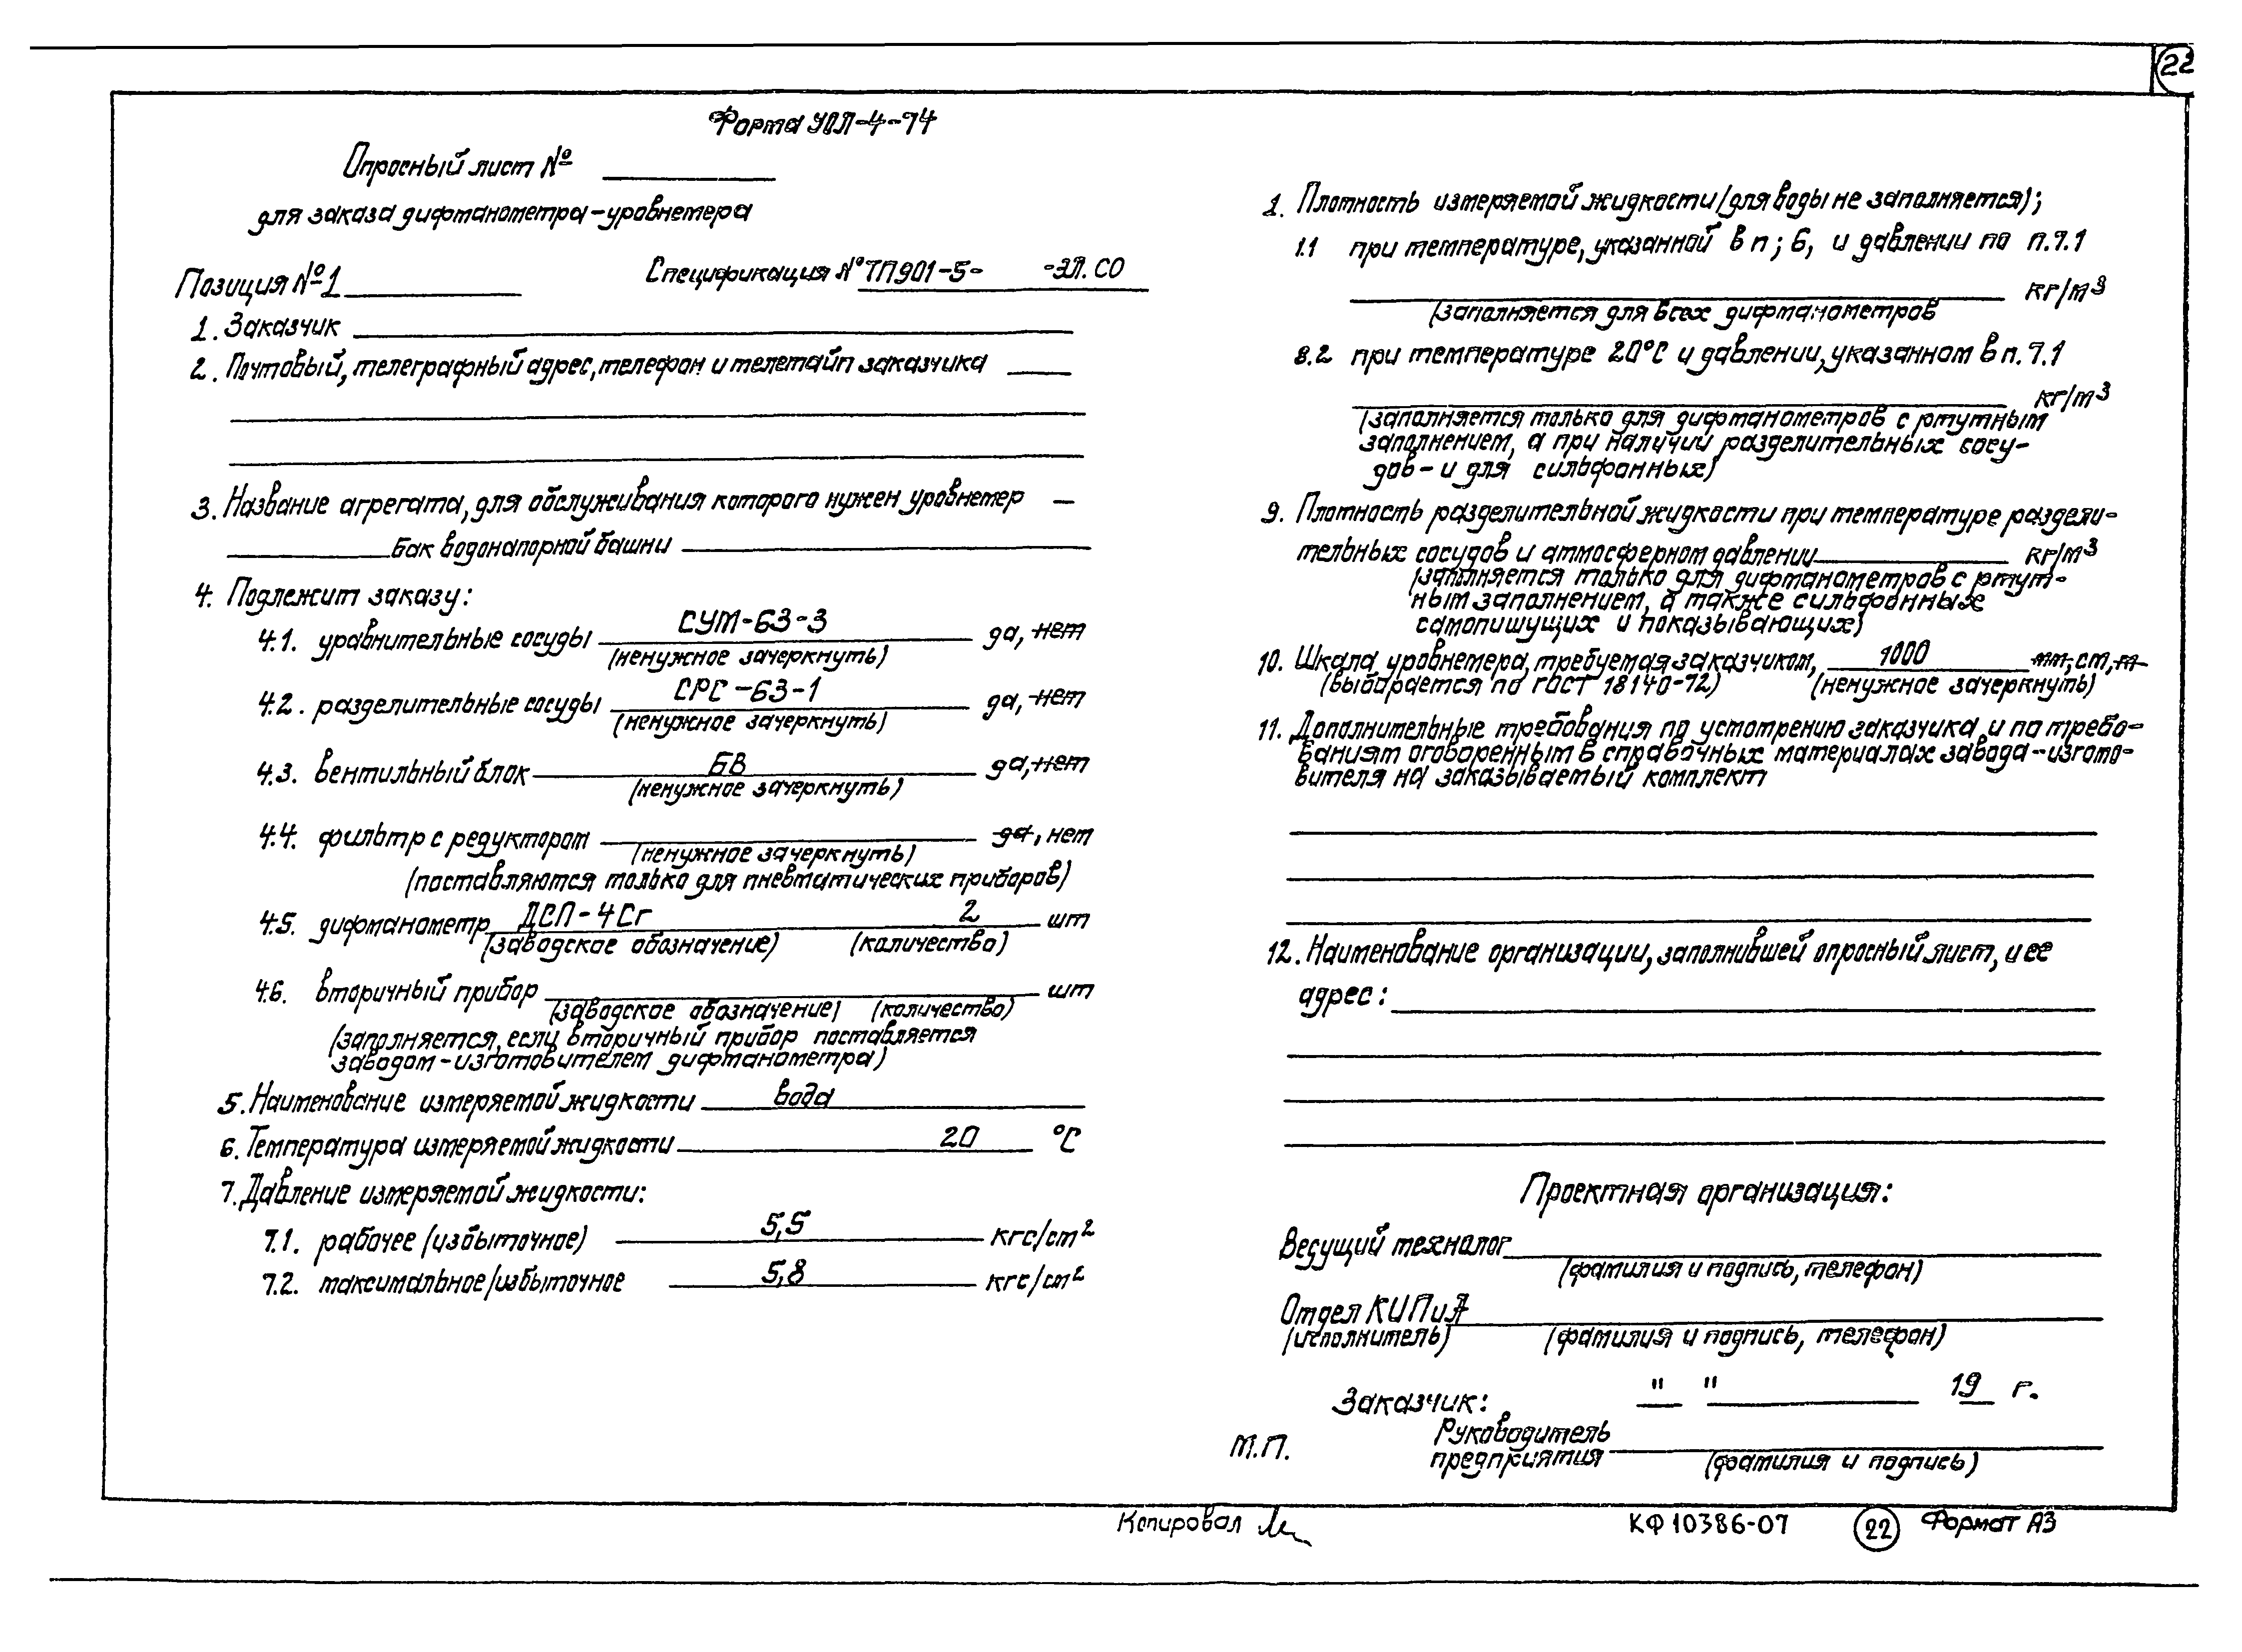 22
Форма УОЛ-4-74
Опросный лист №
для заказа дифманометра-уровнемера
Позиция №1 Спецификация № ТП901-5- -ЭЛ.СО
1. Заказчик
2. Почтовый, телеграфный адрес, телефон и телетайп заказчика
3. Название агрегата, для обслуживания которого нужен уровнемер
бак водонапорной башни
4. Подлежит заказу:
4.1. уравнительные сосуды СУМ-63-3 да, нет
(ненужное зачеркнуть)
4.2. разделительные сосуды СРС-63-1 да, нет
(ненужное зачеркнуть)
4.3. вентильный блок БВ да, нет
(ненужное зачеркнуть)
4.4. фильтр с редуктором да, нет
(ненужное зачеркнуть)
(поставляются только для пневматических приборов)
4.5. дифманометр ДСП-4Сг 2 шт
(заводское обозначение) (количество)
4.6. вторичный прибор шт
(заводское обозначение) (количество)
(заполняется, если вторичный прибор поставляется
заводом-изготовителем дифманометра)
5. Наименование измеряемой жидкости вода
6. Температура измеряемой жидкости 20 °С
7. Давление измеряемой жидкости:
7.1. рабочее (избыточное) 5,5 кгс/см²
7.2. максимальное/избыточное 5,8 кгс/см²
1. Плотность измеряемой жидкости (для воды не заполняется);
1.1 при температуре, указанной в п; 6, и давлении по п.7.1
кг/м³
(заполняется для всех дифманометров
8.2 при температуре 20°С и давлении, указанном в п.7.1
кг/м³
(заполняется только для дифманометров с ртутным
заполнением, а при наличии разделительных сосу-
дов - и для сильфонных)
9. Плотность разделительной жидкости при температуре раздели-
тельных сосудов и атмосферном давлении кг/м³
(заполняется только для дифманометров с ртут-
ным заполнением, а также сильфонных
самопишущих и показывающих)
10. Шкала уровнемера, требуемая заказчиком, 1000 мм, см, м
(выбирается по ГОСТ 18140-72) (ненужное зачеркнуть)
11. Дополнительные требования по усмотрению заказчика и по требо-
ваниям оговоренным в справочных материалах завода-изгото-
вителя на заказываемый комплект
12. Наименование организации, заполнившей опросный лист, и ее
адрес:
Проектная организация:
Ведущий технолог
(фамилия и подпись, телефон)
Отдел КИПиА
(исполнитель) (фамилия и подпись, телефон)
Заказчик: " " 19 г.
М.П. Руководитель
предприятия
(фамилия и подпись)
Копировал КФ10386-07 22 Формат А3